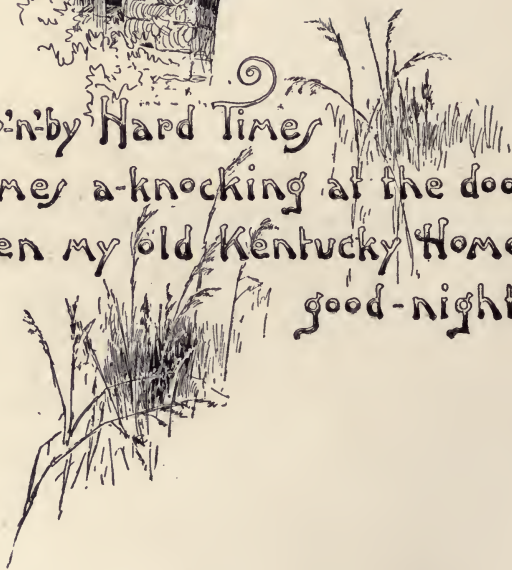 'n'-by Hard Times
mes a-knocking at the doo
en my old Kentucky Home
good-night